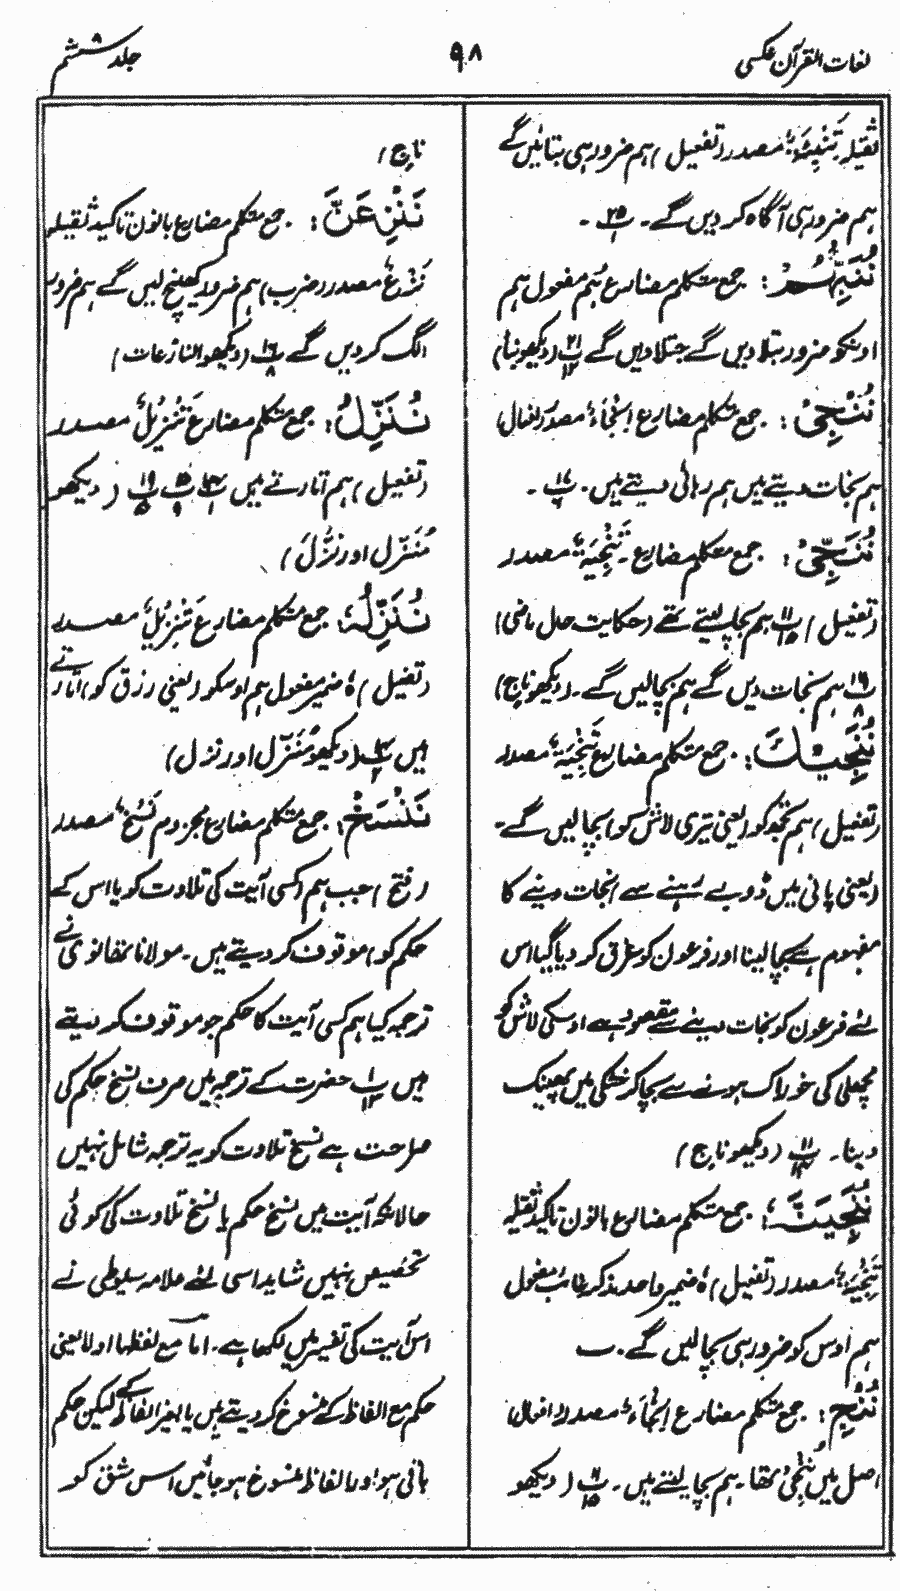 لغات القرآن عکسی
۹۸
جلد ششم
ثقیلہ تَنْبِئَۃٌ مصدر (تفعیل) ہم ضرور ہی بتائیں گے
ہم ضرور ہی آگاہ کر دیں گے۔ پ ۲۵ ۱ ۔
جمع متکلم مضارع ہُمْ مفعول ہم
اونکو ضرور بتلا دیں گے جتلا دیں گے پ ۲۱ ۱۲ (دیکھو نبأ)
نُنْجِی : جمع متکلم مضارع اِنْجَاءٌ مصدر (افعال)
ہم نجات دیتے ہیں ہم رہائی دیتے ہیں۔ پ ۱۷ ۶ ۔
نُنَجِّی : جمع متکلم مضارع۔ تَنْجِیَۃٌ مصدر
(تفعیل) پ ۱۱ ۱۵ ہم بچا لیتے تھے (حکایت حال ماضی)
پ ۱۶ ۸ ہم نجات دیں گے ہم بچا لیں گے۔ (دیکھو ناجٍ)
نُنَجِّیْكَ : جمع متکلم مضارع تَنْجِیَۃٌ مصدر
(تفعیل) ہم تجھ کو (یعنی تیری لاش کو) بچا لیں گے۔
(یعنی پانی میں ڈوبے رہنے سے) نجات دینے کا
مفہوم ہے بچا لینا اور فرعون کو غرق کر دیا گیا اس
لئے فرعون کو نجات دینے سے مقصود ہے اوسکی لاش کو
مچھلی کی خوراک ہونے سے بچا کر خشکی میں پھینک
دینا۔ پ ۱۱ ۱۴ (دیکھو ناجٍ)
نُنَجِّیَنَّہٗ : جمع متکلم مضارع بالون تاکید ثقیلہ
تَنْجِیَۃٌ مصدر (تفعیل) ہٗ ضمیر واحد مذکر غائب مفعول
ہم اوس کو ضرور ہی بچا لیں گے۔ پ
نُنْجِ : جمع متکلم مضارع اِنْجَاءٌ مصدر (افعال)
اصل میں نُنْجِیْ تھا۔ ہم بچا لیتے ہیں۔ پ ۱۱ ۱۵ (دیکھو
ناجٍ)
نَنْزِعَنَّ : جمع متکلم مضارع بالون تاکید ثقیلہ
نَزْعٌ مصدر (ضرب) ہم ضرور کھینچ لیں گے ہم ضرور
الگ کر دیں گے پ ۱۶ ۸ (دیکھو النازعات)
نُنَزِّلُ : جمع متکلم مضارع تَنْزِیْلٌ مصدر
(تفعیل) ہم اتارتے ہیں پ ۱ پ ۱۵ ۹ پ ۱۹ ۵ (دیکھو
مُنَزِّل اور نَزَّلَ)
نُنَزِّلُہٗ : جمع متکلم مضارع تَنْزِیْلٌ مصدر
(تفعیل) ہٗ ضمیر مفعول ہم اوسکو (یعنی رزق کو) اتارتے
ہیں پ ۲ (دیکھو مُنَزِّل اور نزل)
نَنْسَخْ : جمع متکلم مضارع مجزوم نَسْخٌ مصدر
(فتح) جب ہم (کسی آیت کی تلاوت کو یا اس کے
حکم کو) موقوف کر دیتے ہیں۔ مولانا تھانوی نے
ترجمہ کیا ہم کسی آیت کا حکم جو موقوف کر دیتے
ہیں پ ۱ ۱۳ حضرت کے ترجمہ میں صرف نسخ حکم کی
صراحت ہے نسخ تلاوت کو یہ ترجمہ شامل نہیں
حالانکہ آیت میں نسخ حکم یا نسخ تلاوت کی کوئی
تخصیص نہیں شاید اسی لئے علامہ سیوطی نے
اس آیت کی تفسیر میں لکھا ہے۔ اما مع لفظہا او لا یعنی
حکم مع الفاظ کے منسوخ کر دیتے ہیں یا بغیر الفاظ کے لیکن حکم
باقی ہو اور الفاظ منسوخ ہو جائیں اس شق کو